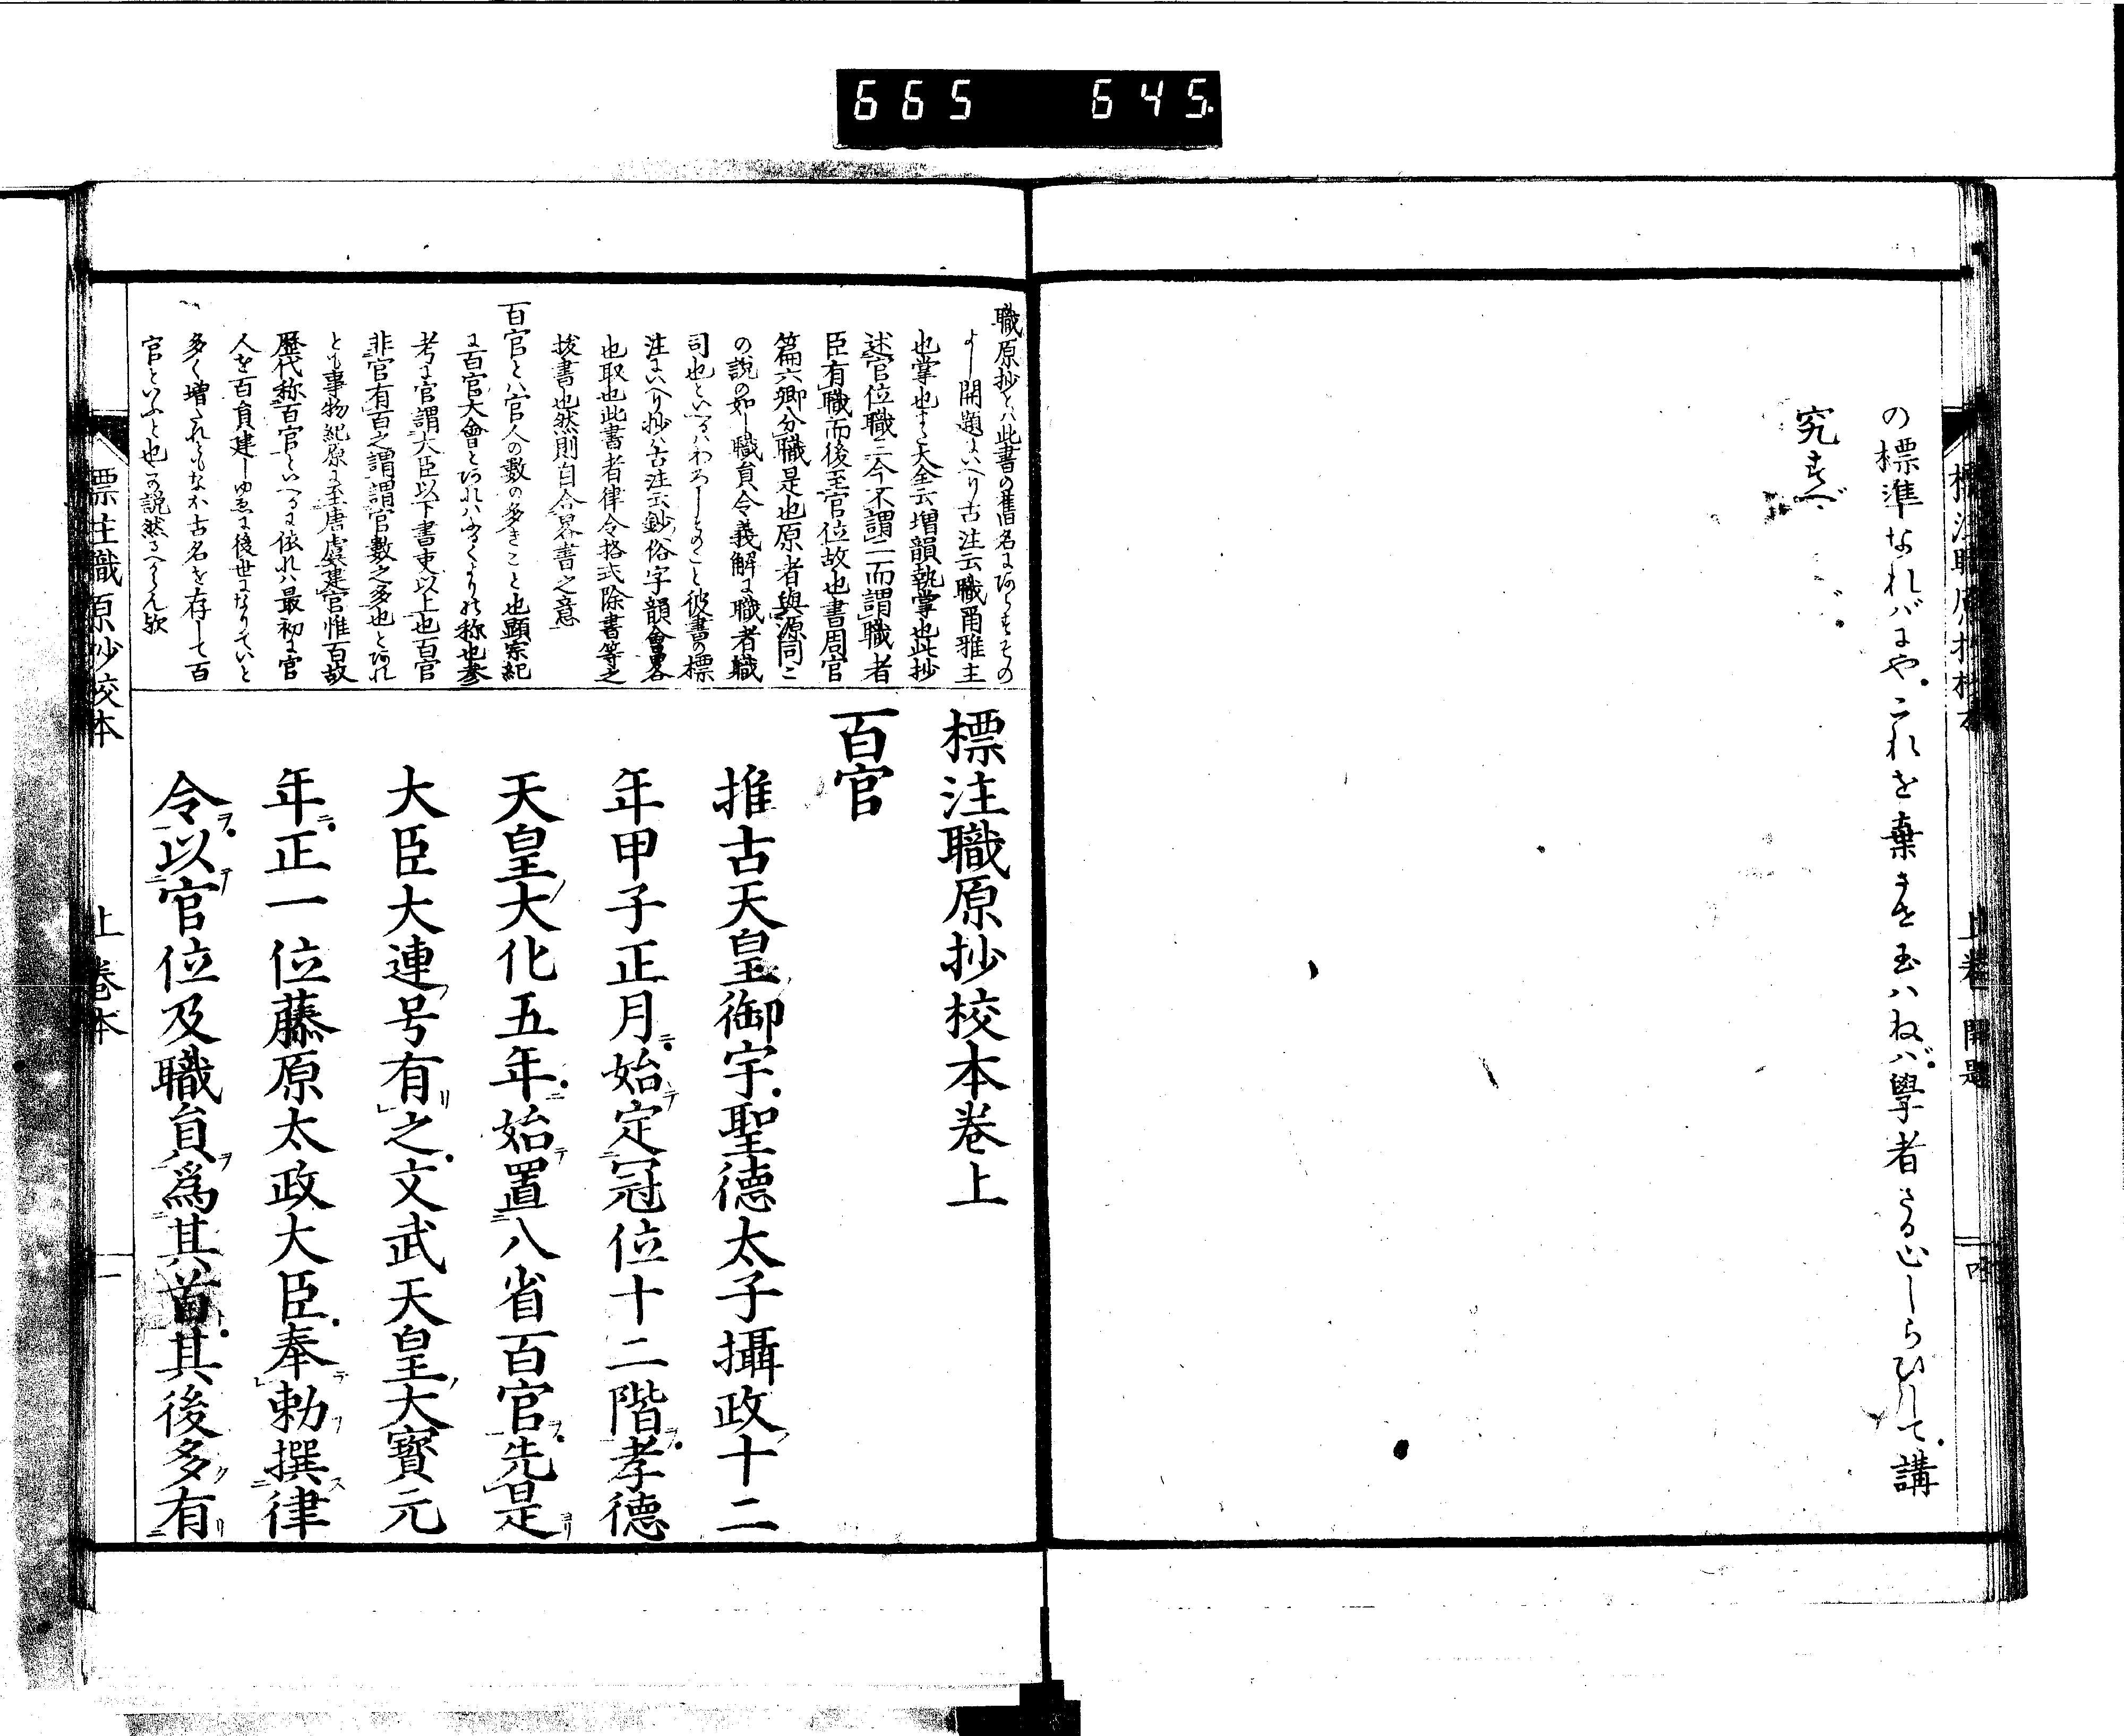 665 645.
の標準なれバにや。これを棄させ玉ハねバ。學者さる心しらひして。講
究すべ
標注職原抄校本
上卷 開題
職原抄とハ此書の舊名にあらすその
よし開題にいへり古注云職爾雅主
也掌也また大全云増韻執掌也此抄
述官位職三今不謂二而謂職者
臣有職而後至官位故也書周官
篇六卿分職是也原者與源同ニ
の説の如し職員令義解に職者職
司也といへるハわろしそのこと彼書の標
注にいへり抄ハ古注云鈔俗字韻會畧
也取也此書者律令格式除書等之
抜書也然則自合畧書之意
百官とハ官人の數の多きこと也顯宗紀
に百官大會とあれハふるくよりの称也参
考に官謂大臣以下書吏以上也百官
非官有百之謂謂官數之多也とあれ
とも事物紀原に至唐虞建官惟百故
歴代称百官といへるに依れハ最初に官
人を百員建しゆゑに後世になりていと
多く増たれともなほ古名を存して百
官といふと也此説然るへからん歟
標注職原抄校本卷上
百官
推古天皇ノ御宇。聖徳太子攝政十二
年甲子正月ニ。始テ定冠位十二階ヲ。孝徳
天皇ノ大化五年ニ。始テ置八省百官ヲ。先是ヨリ
大臣大連ノ号有リ之。文武天皇ノ大寶元
年ニ。正一位藤原太政大臣。奉テ勅ヲ撰ス律
令ヲ。以テ官位及職員ヲ爲其首ト。其後多ク有リ
標注職原抄校本
上卷本
一